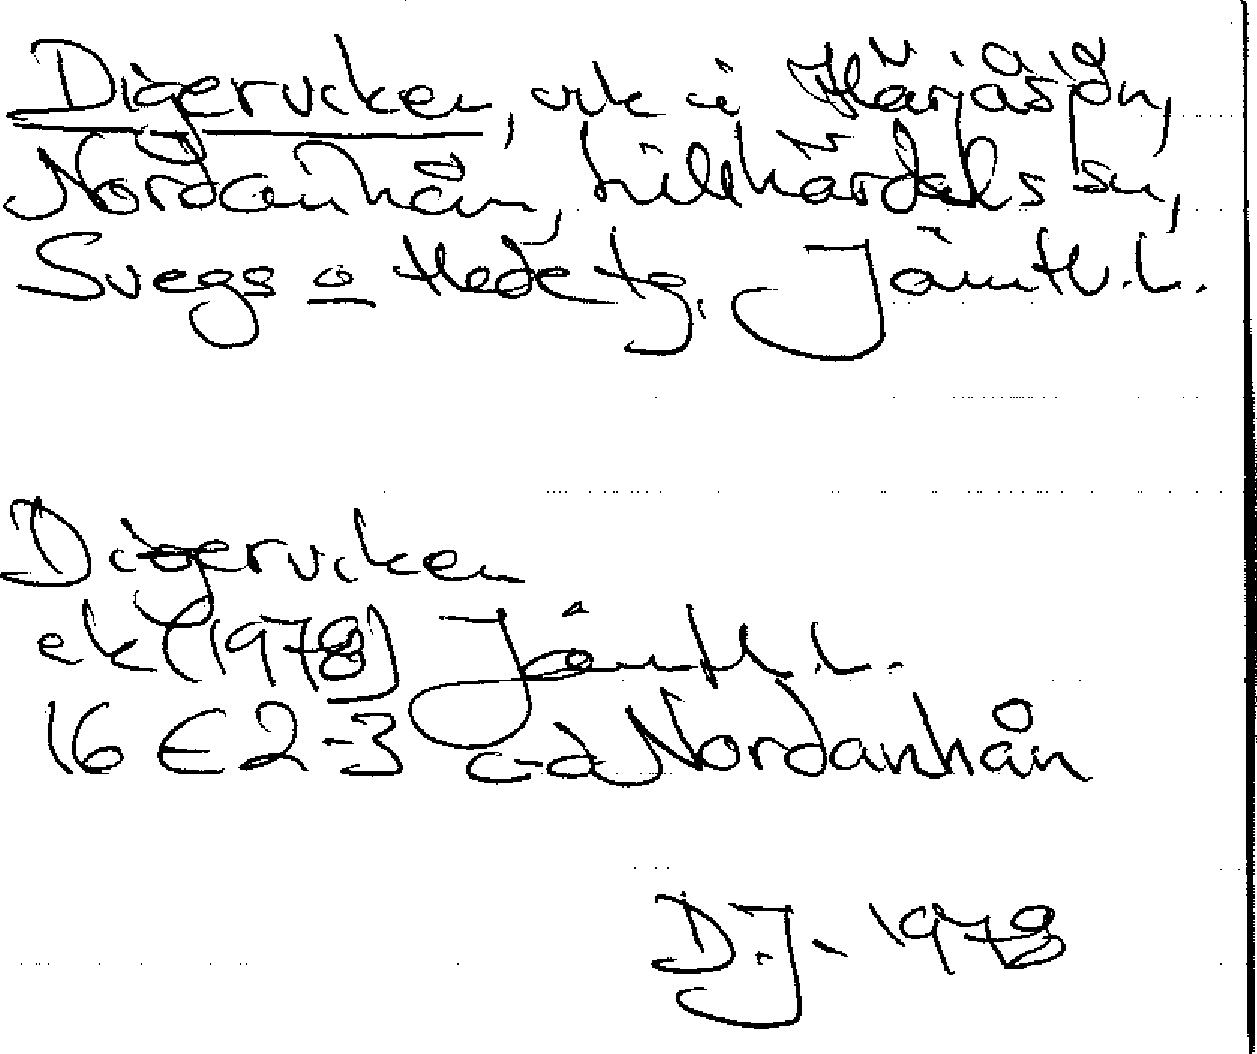 Digerviken, vik i Härjåsjön,
Nordanhån, Lillhärdals sn,
Svegs o Hede tg. Jämtl. L.
Digerviken
ek (1978) Jämtl. L.
16 E 2-3 c-d Nordanhån
D.J - 1978